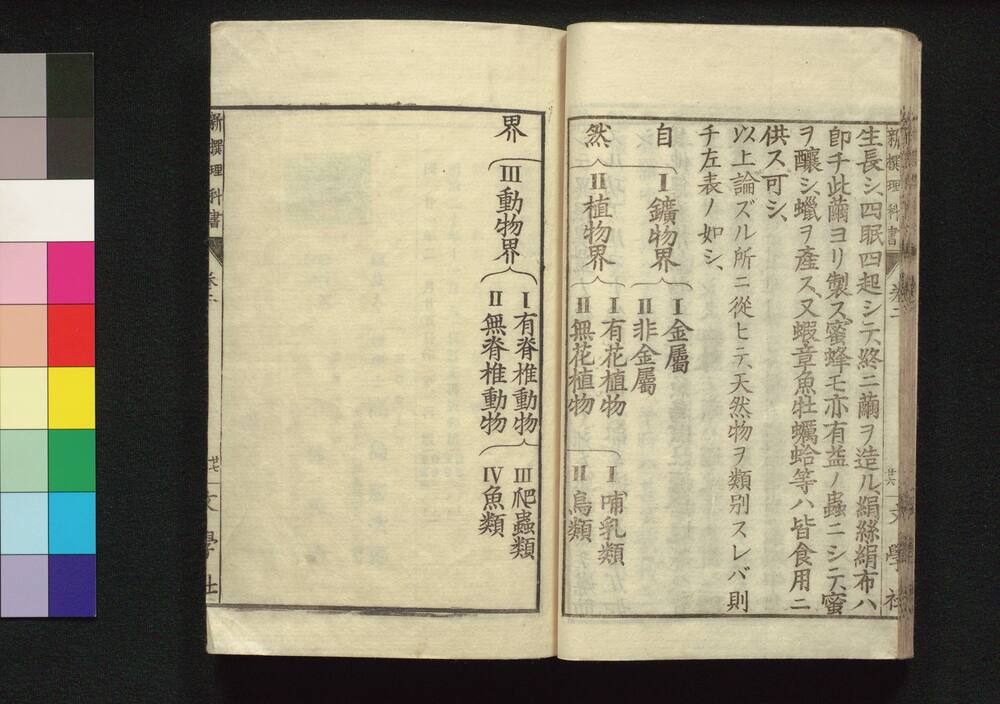 新撰理科書
卷二
廿六
文學社
生長シ、四眠四起シテ、終ニ繭ヲ造ル、絹絲絹布ハ
卽チ此繭ヨリ製ス、蜜蜂モ亦有益ノ蟲ニシテ、蜜
ヲ釀シ、蠟ヲ產ス、又蝦章魚牡蠣蛤等ハ皆食用ニ
供ス可シ、
以上論ズル所ニ從ヒテ、天然物ヲ類別スレバ則
チ左表ノ如シ、
自
I 鑛物界
I 金屬
II 非金屬
然
II 植物界
I 有花植物
II 無花植物
I 哺乳類
II 鳥類
界
III 動物界
I 有脊椎動物
II 無脊椎動物
III 爬蟲類
IV 魚類
新撰理科書
卷二
廿七
文學社